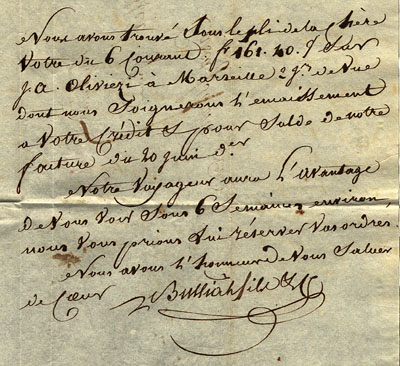 Nous avons trouvé sous le pli de la chère
Votre du 6 Courant f 161.40. Sur
J. A. Olivieri à Marseille 29 Jrs de Vue
dont nous Soignerons l'encaissement
a Votre Crédit & pour Solde de notre
facture du 20 Juin der
Notre Voyageur aura l'avantage
De Vous Voir Sous 6 Semaines environ,
nous Vous prions lui réserver Vos ordres.
Nous avons l'honneur de Vous Saluer
de Cœur
fils & C